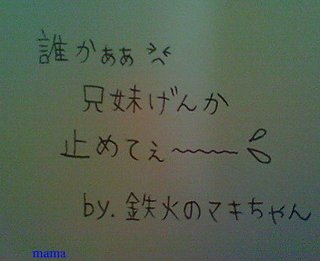 誰かぁぁ
兄妹げんか
止めてぇ〜〜〜
by.鉄火のマキちゃん
mama